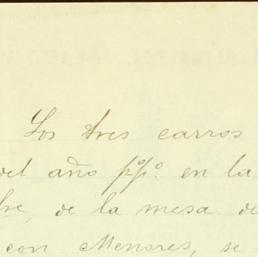 Los tres carros
del año ppº. en la
bre, de la mesa de
con Menores, se